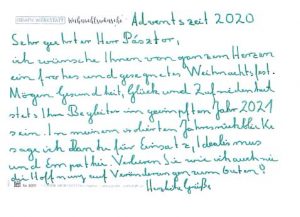 GRAFIK WERKSTATT Weihnachtswünsche Adventszeit 2020
Sehr geehrter Herr Pásztor,
ich wünsche Ihnen von ganzem Herzen
ein frohes und gesegnetes Weihnachtsfest.
Mögen Gesundheit, Glück und Zufriedenheit
stets Ihre Begleiter im geimpften Jahr 2021
sein. In meinem Jahresrückblicke
sage ich Danke für Einsatz, Idealismus
und Empathie. Verlieren Sie wie ich auch nie
die Hoffnung auf Veränderungen zum Guten!
Herzliche Grüße